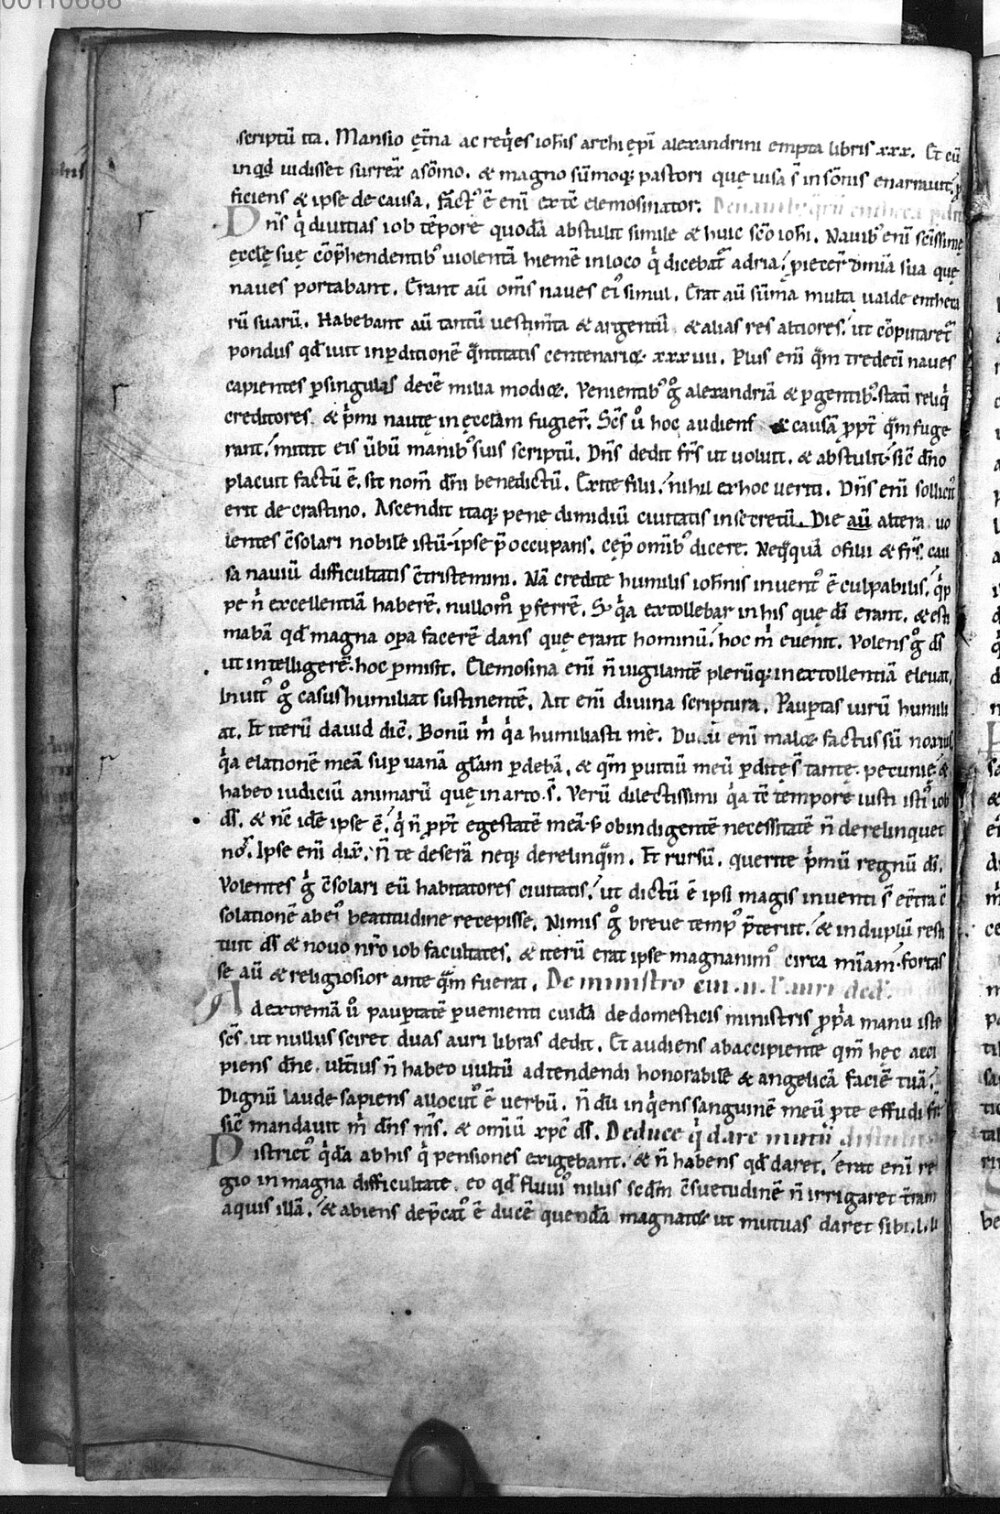 00110688
scriptū ita. Mansio ęt̄na ac req̇es ioh̄is archi ep̄i alexandrini empta libris .xxx. Et cū
inqd̄ uidisset surrex̄ a sōmo. & magno sūmoq; pastori que uisa s̄ in sōnis enarrauit, ꝑ
ficiens & ipse de causa. fact᷒ ē enī ex tē elemosinator.
Dn̄s q̇ diuitias iob tēpore quodā abstulit simile & huic sc̄o ioh̄i. Nauib᷒ enī sc̄issimę
ęccl̄ę suę cōp̄hendentib᷒ uiolentā hiemē in loco q̇ dicebat᷑ adria, piecer̄ om̄ia sua quę
naues portabant. Erant aū om̄s naues ei᷒ simul. Erat aū sūma multa ualde entheca
rū suarū. Habebant aū tantū uestim̄ta & argentū & alias res altiores, ut cōputaret᷑
pondus qd̄ iuit in ꝑditionē q̄ntitatis centenariæ .xxxiiii. Plus enī q̄m tredecī naues
capientes ꝑ singulas decē milia modiæ. Venientib᷒ g̊ alexandriā & ꝑgentib᷒ statī reliq̇
creditores. & ṗmi naute in ęccl̄am fugier̄. Sc̄s u̇ hoc audiens & causā ꝓpt̄ q̄m fuge
rant, mittit eis ūbū manib᷒ suis scriptū. Dn̄s dedit fr̄s ut uoluit. & abstulit, sic̄ dn̄o
placuit factū ē. sit nom̄ dn̄i benedictū. Exite filii, nihil ex hoc ueriti. Dn̄s enī sollicit᷒
erit de crastino. Ascendit itaq; pene dimidiū ciuitatis in secretū. Die aū altera uo
lentes c̄solari nobile istū, ipse p̄occupans. cęp̄ om̄ib᷒ dicere. Neq̄quā o filii & fr̄s. cau
sa nauiū difficultatis c̄tristemini. Nā credite humilis ioh̄nis inuent᷒ ē culpabilis, q̇p
pe n̄ excellentiā haberē. nullom᷒ ꝑferrē. S; q̇a extollebar in his que dī erant. & esti
mabā qd̄ magna oꝑa facerē dans quę erant hominū, hoc m̄ euenit. Volens g̊ ds̄
ut intelligerē. hoc ꝑmisit. Elemosina enī n̄ uigilantē plerūq; in extollentiā eleuat.
Inuit᷒ g̊ casus humiliat sustinentē. Ait enī diuina scriptura. Pauꝑtas uirū humili
at. Et iterū dauid dic̄. Bonū m̄ q̇a humiliasti me. enī malæ factus sū noxius
q̇a elationē meā suꝑ uanā gl̄am ꝑdebā, & q̄m putiū meū ꝑdite s̄ tante pecunie. &
habeo iudiciū animarū quę in arto s̄. Verū dilectissimi q̇a tē tempore iusti isti᷒ iob
ds̄. & nc̄ idē ipse ē, q̇ n̄ ꝓpt̄ egestatē meā, s; ob indigentē necessitatē n̄ derelinquet
no᷒. Ipse enī dix̄, n̄ te deserā neq; derelinq̄m. Et rursū. querite ṗmū regnū dī.
Volentes g̊ c̄solari eū habitatores ciuitatis, ut dictū ē ipsi magis inuenti s̄ ec̄tra c̄
solationē ab ei᷒ beatitudine recepisse. Nimis g̊ breue temp᷒ p̄terit, & in duplū resti
tuit ds̄ & nouo nr̄o iob facultates. & iterū erat ipse magnanim᷒ circa mīam, fortas
se aū & religiosior ante q̄m fuerat. De ministro cui .ii. l. auri ded̄.
Ad extremā u̇ pauꝑtatē ꝑuenienti cuidā de domesticis ministris ꝓṗa manu iste
sc̄s. ut nullus sciret duas auri libras dedit. Et audiens ab accipiente qm̄ hęc acci
piens dn̄e. ult̄ius n̄ habeo uultū adtendendi honorabile & angelicā faciē tuā,
Dignū laude sapiens allocut᷒ ē uerbū. n̄ dū inq̇ens sanguinē meū ꝓ te effudi fr̄
sic̄ mandauit m̄ dn̄s m̄s. & omiū xp̄c ds̄. De duce q̇ dare
Districte᷒ q̇dā ab his q̇ pensiones exigebant. & n̄ habens qd̄ daret. erat enī re
gio in magna difficultate. eo qd̄ fluui᷒ nilus sedm̄ c̄suetudinē n̄ irrigaret t̄ram
aquis illā, & abiens dep̄cat᷒ ē ducē quendā magnatū ut mutuas daret sibi .l. li